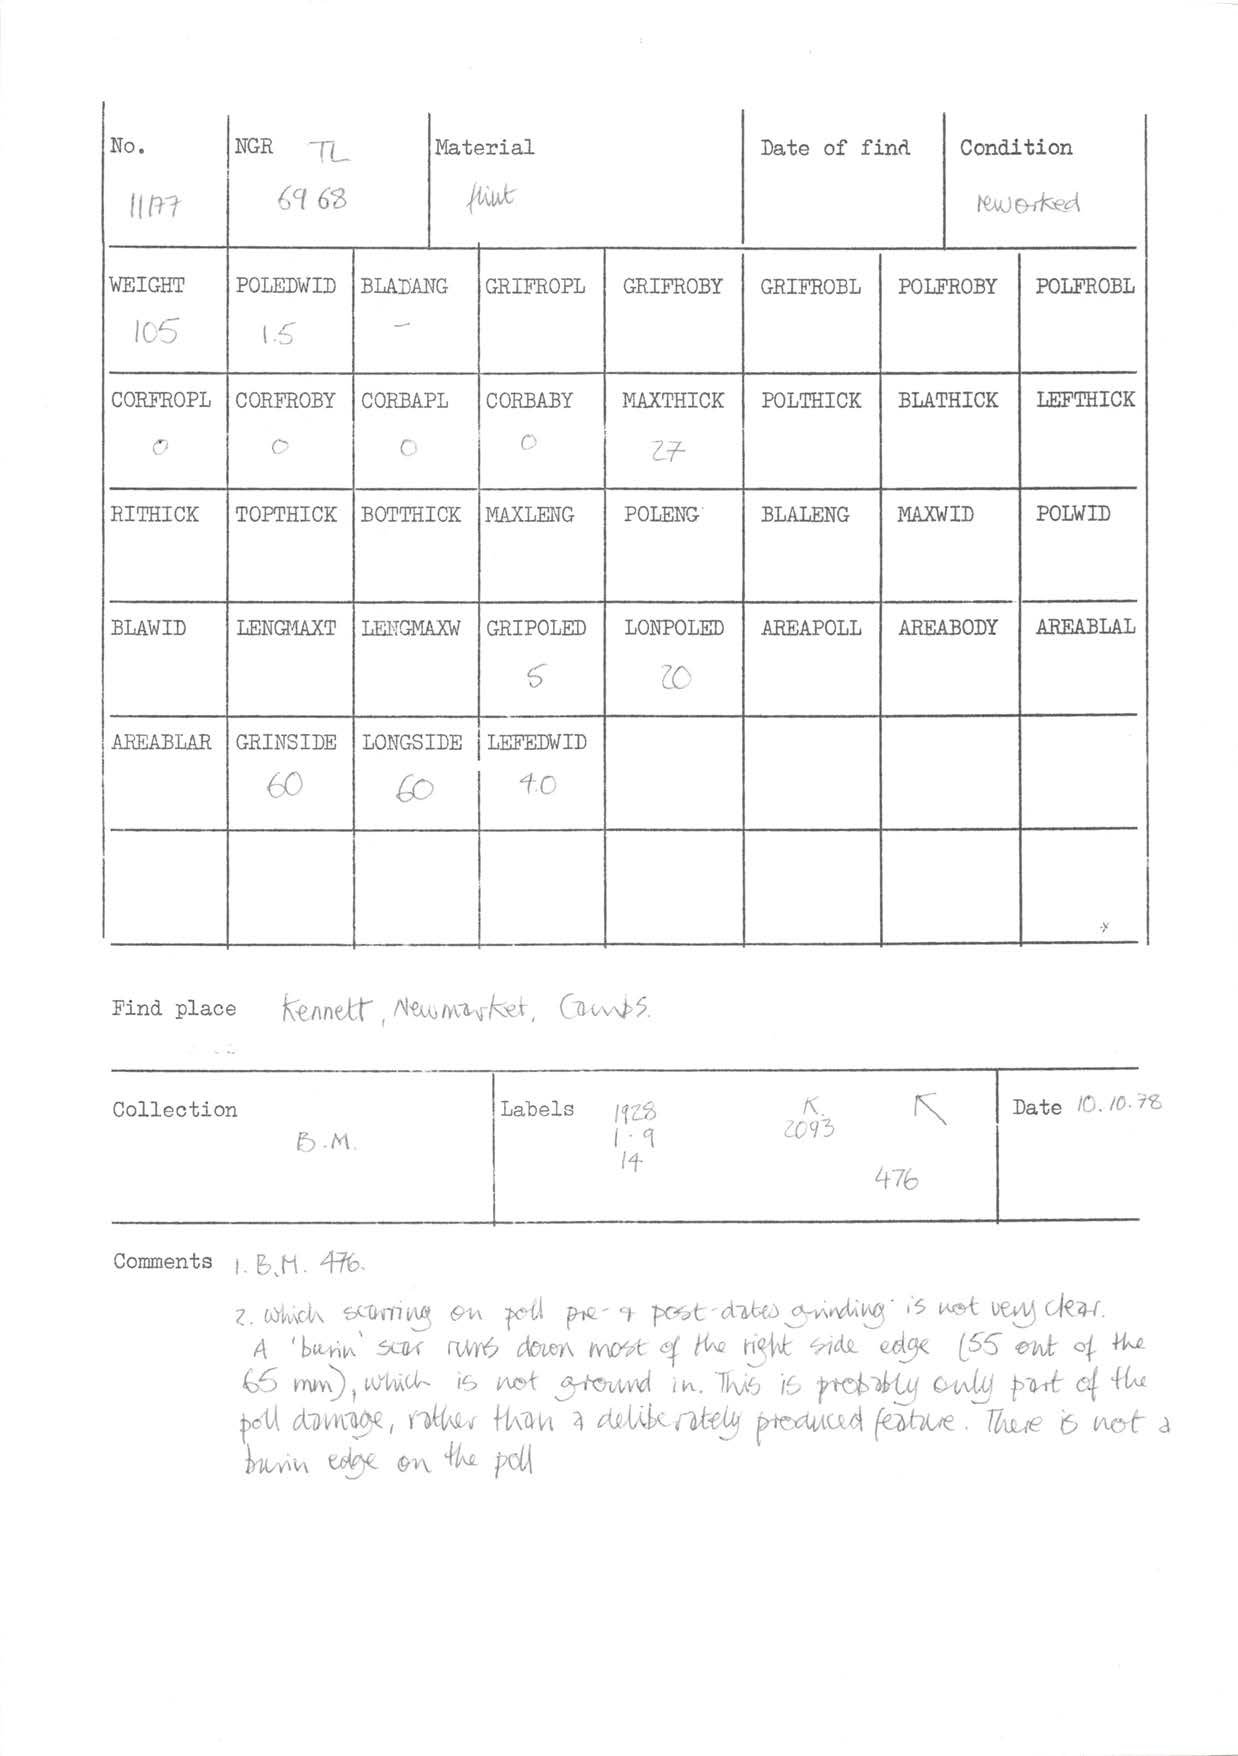 No. NGR TL Material Date of find Condition
11/77 69 68 flint reworked
WEIGHT POLEDWID BLADANG GRIFROPL GRIFROBY GRIFROBL POLFROBY POLFROBL
105 1.5 –
CORFROPL CORFROBY CORBAPL CORBABY MAXTHICK POLTHICK BLATHICK LEFTHICK
0 0 0 0 27
RITHICK TOPTHICK BOTTHICK MAXLENG POLENG BLALENG MAXWID POLWID
BLAWID LENGMAXT LENGMAXW GRIPOLED LONPOLED AREAPOLL AREABODY AREABLAL
5 20
AREABLAR GRINSIDE LONGSIDE LEFEDWID
60 60 4.0
Find place Kennett, Newmarket, Cambs.
Collection Labels 1928 K. K Date 10.10.78
B.M. 1.9 2093
14
476
Comments 1. B.M. 476.
2. Which scarring on poll pre- & post-dates grinding is not very clear.
A 'burin' scar runs down most of the right side edge (55 out of the
65 mm), which is not ground in. This is probably only part of the
poll damage, rather than a deliberately produced feature. There is not a
burin edge on the poll